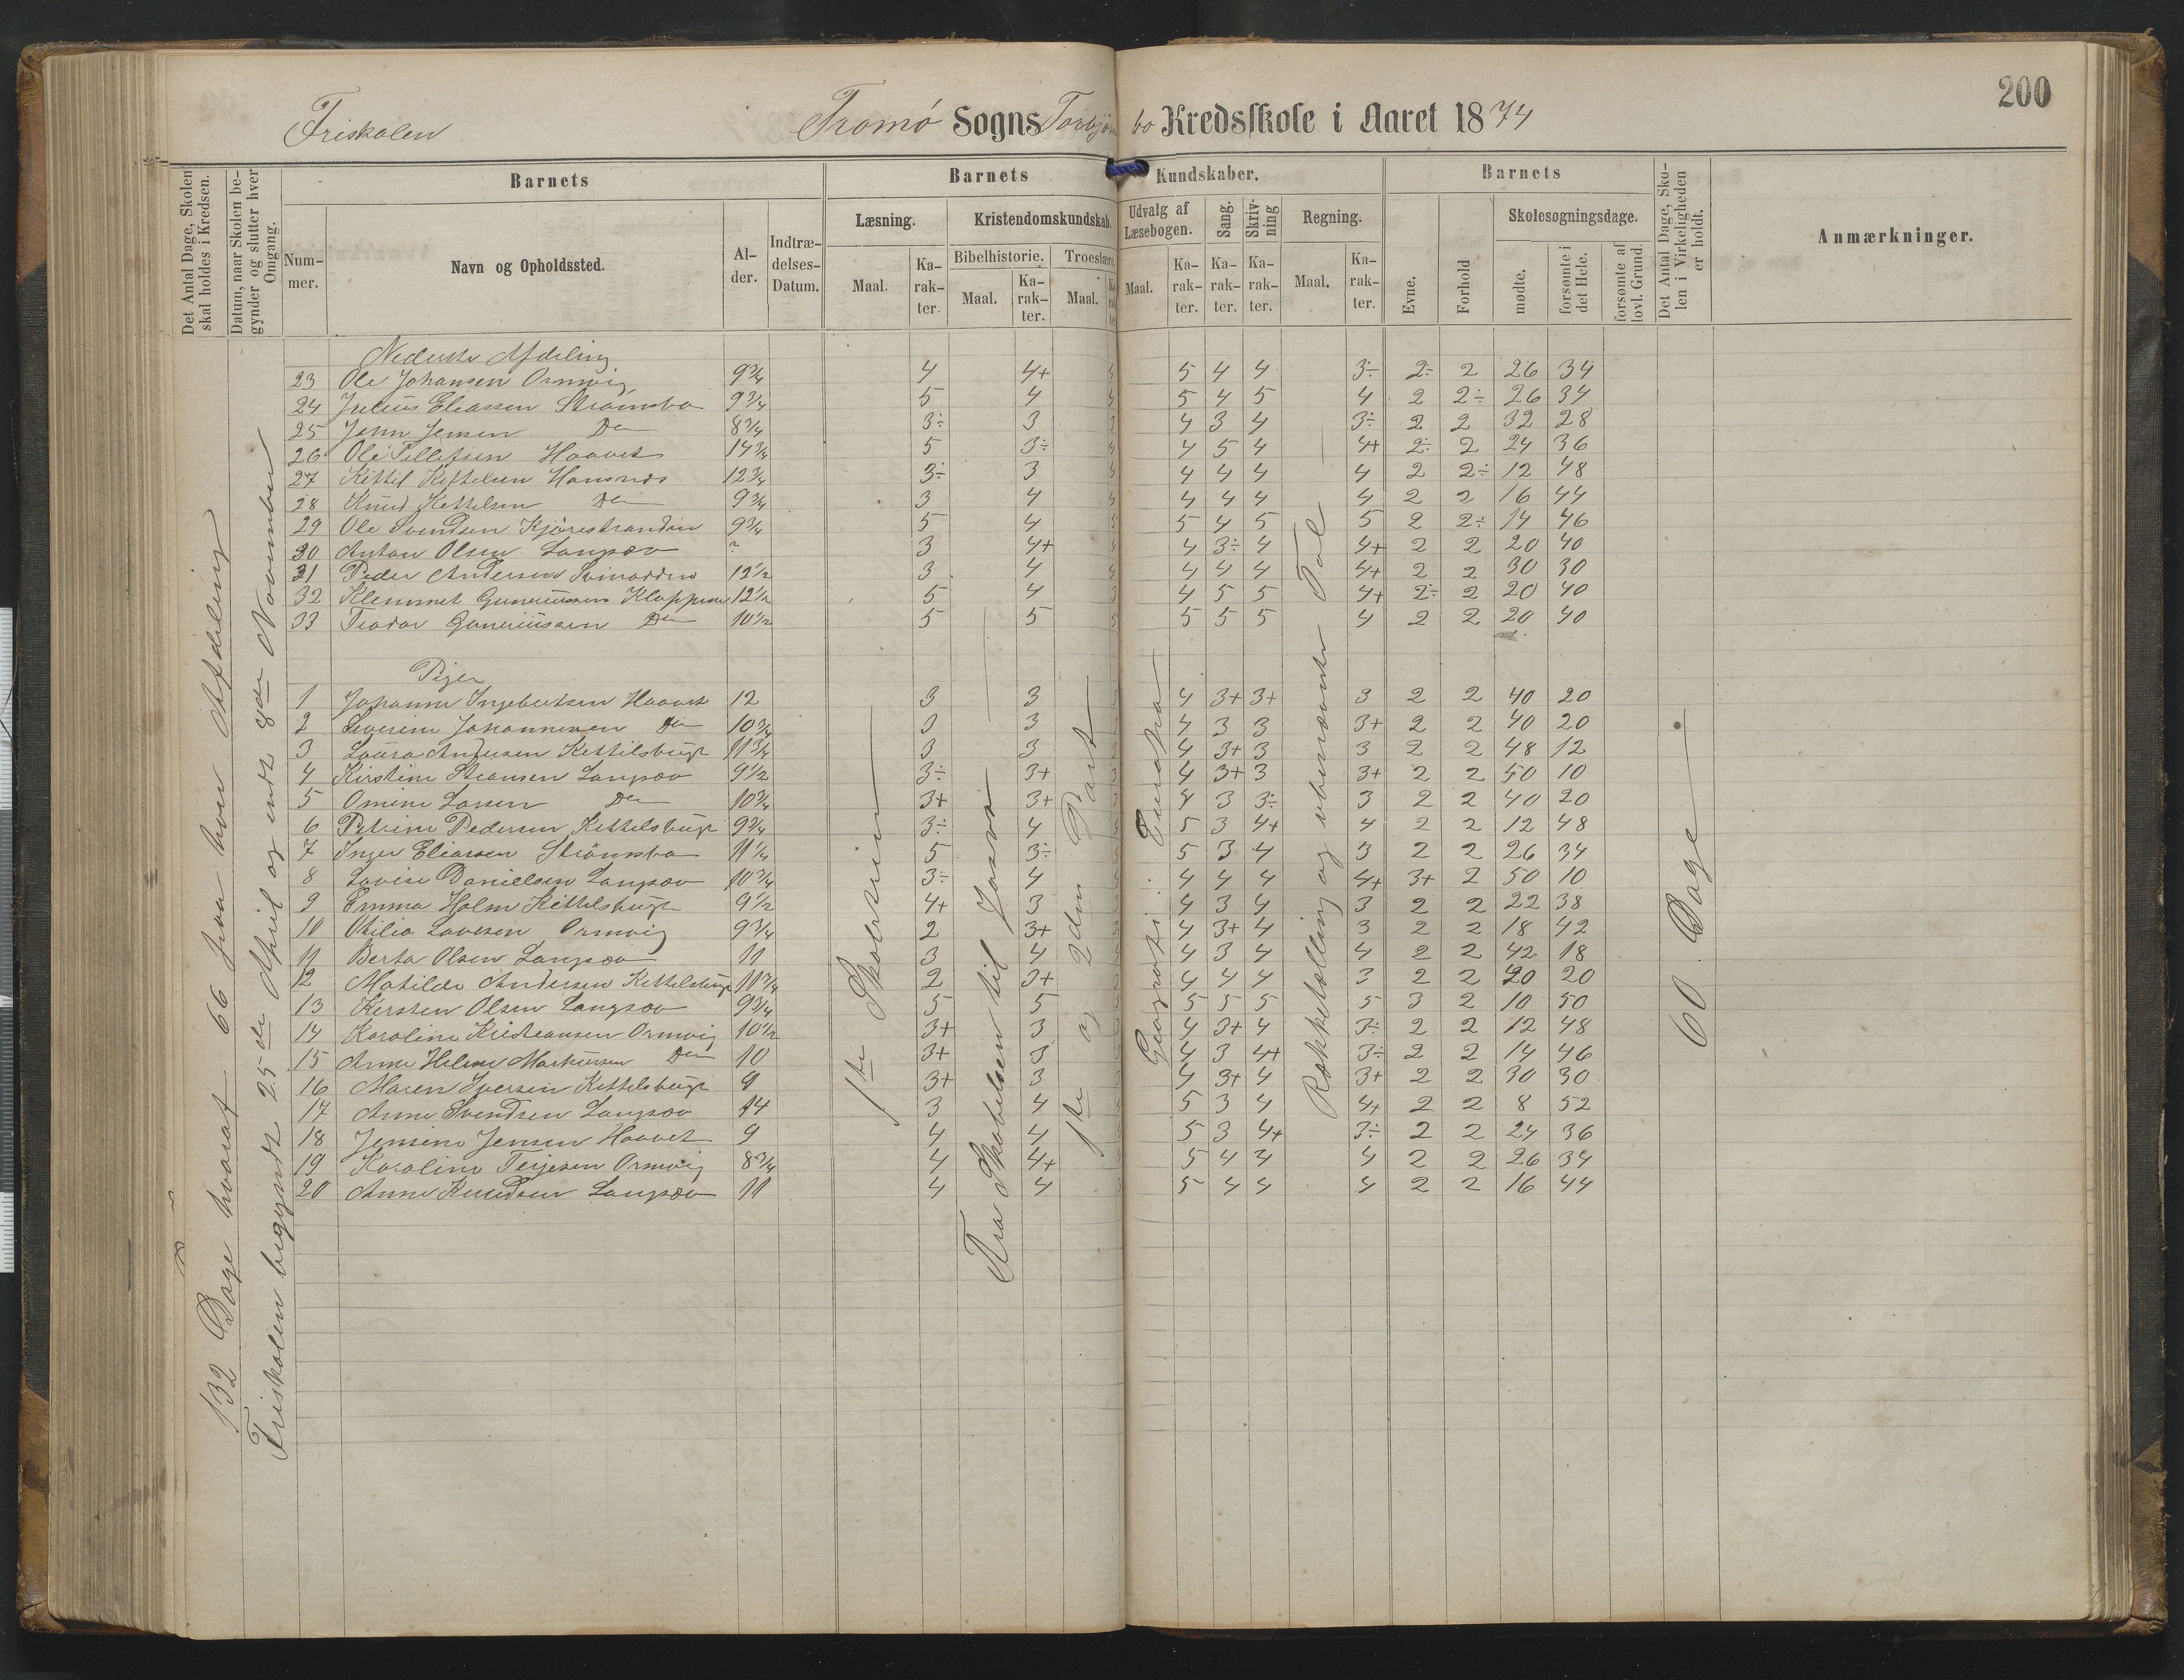 200
Friskolen Tromø Sogns Torbjørnsbo Kredsskole i Aaret 1874
Det Antal Dage, Skolen skal holdes i Kredsen.
Datum, naar Skolen begynder og slutter hver Omgang.
Barnets
Nummer.
Navn og Opholdssted.
Alder.
Indtrædelses-Datum.
Barnets Kundskaber.
Læsning.
Maal.
Karakter.
Kristendomskundskab.
Bibelhistorie.
Maal.
Karakter.
Troeslære.
Maal.
Udvalg af Læsebogen.
Maal.
Karakter.
Sang.
Karakter.
Skrivning
Karakter.
Regning.
Maal.
Karakter.
Barnets
Evne.
Forhold
Skolesøgningsdage.
mødte.
forsømte i det Hele.
forsømte af lovl. Grund.
Det Antal Dage, Skolen i Virkeligheden er holdt.
Anmærkninger.
132 Dage hvoraf 66 paa hver Afdeling
Friskolen begyndt 25de April og endt 8de November
Nederste Afdeling
23 Ole Johansen Ormvig 9¾ 4 4+ 5 4 4 3÷ 2÷ 2 26 34
24 Julius Eliassen Strømsbo 9¾ 5 4 5 4 5 4 2 2÷ 26 34
25 John Jensen Do 8¾ 3÷ 3 4 3 4 3÷ 2 2 32 28
26 Ole Tellefsen Haavet 14¾ 5 3÷ 4 5 4 4+ 2÷ 2 24 36
27 Kittil Kittelsen Hansnes 12¾ 3÷ 3 4 4 4 4 2 2÷ 12 48
28 Knud Kettelsen Do 9¾ 3 4 4 4 4 4 2 2 16 44
29 Ole Svendsen Kjørestranden 9¾ 5 4 5 4 5 5 2 2÷ 14 46
30 Anton Olsen Langsæv ? 3 4+ 4 3÷ 4 4+ 2 2 20 40
31 Peder Andersen Svinodden 12½ 3 4 4 4 4 4+ 2 2 30 30
32 Klemmet Gunerussen Kloppene 12½ 5 4 4 5 5 4+ 2÷ 2 20 40
33 Teodor Guneriussen Do 10½ 5 5 5 5 5 4 2 2 20 40
Piger
1 Johanne Ingebertsen Haavet 12 3 3 4 3+ 3+ 3 2 2 40 20
2 Severine Johannesen Do 10¾ 3 3 4 3 3 3+ 2 2 40 20
3 Laura Andersen Kettilsbugt 11¾ 3 3 4 3+ 3 3 2 2 48 12
4 Kirstine Steansen Langsæv 9½ 3÷ 3+ 4 3+ 3 3+ 2 2 50 10
5 Omine Larsen Do 10¾ 3+ 3+ 4 3 3÷ 3 2 2 40 20
6 Petrine Pedersen Kettelsbugt 9¾ 3÷ 4 5 3 4+ 4 2 2 12 48
7 Inger Eliassen Strømsbo 11¼ 5 3÷ 5 3 4 3 2 2 26 34
8 Lovise Danielsen Langsæv 10¾ 3÷ 4 4 4 4 4+ 3+ 2 50 10
9 Emma Holm Kittelsbugt 9½ 4+ 3 4 3 4 3 2 2 22 38
10 Otilia Lovesen Ormvig 9¾ 2 3+ 4 3+ 4 3 2 2 18 42
11 Berta Olsen Langsæv 11 3 4 4 3 4 4 2 2 42 18
12 Matilde Andersen Kettelsbugt 11¾ 2 3+ 4 4 4 3 2 2 40 20
13 Kersten Olsen Langsæv 9¾ 5 5 5 5 5 5 3 2 10 50
14 Karoline Kristeansen Ormvig 10½ 3+ 3 4 3+ 4 3÷ 2 2 12 48
15 Anne Helene Markussen Do 10 3+ 3 4 3 4+ 3÷ 2 2 14 46
16 Maren Iversen Kettelsbugt 9 3+ 3 4 3+ 4 3+ 2 2 30 30
17 Anne Svendsen Langsæv 14 3 4 5 3 4 4+ 2 2 8 52
18 Jensine Jensen Haavet 9 4 4 5 3 4+ 3÷ 2 2 24 36
19 Karoline Terjesen Ormvig 8¾ 4 4+ 5 4 4 4 2 2 26 34
20 Anne Knudsen Langsæv 11 4 4 5 4 4 4 2 2 16 44
1ste Skoletrin
Fra Skabelsen til Josva
1ste og 2den Part
Geografi: Europa
Rækketælling og ubenævnte Tal
60 Dage